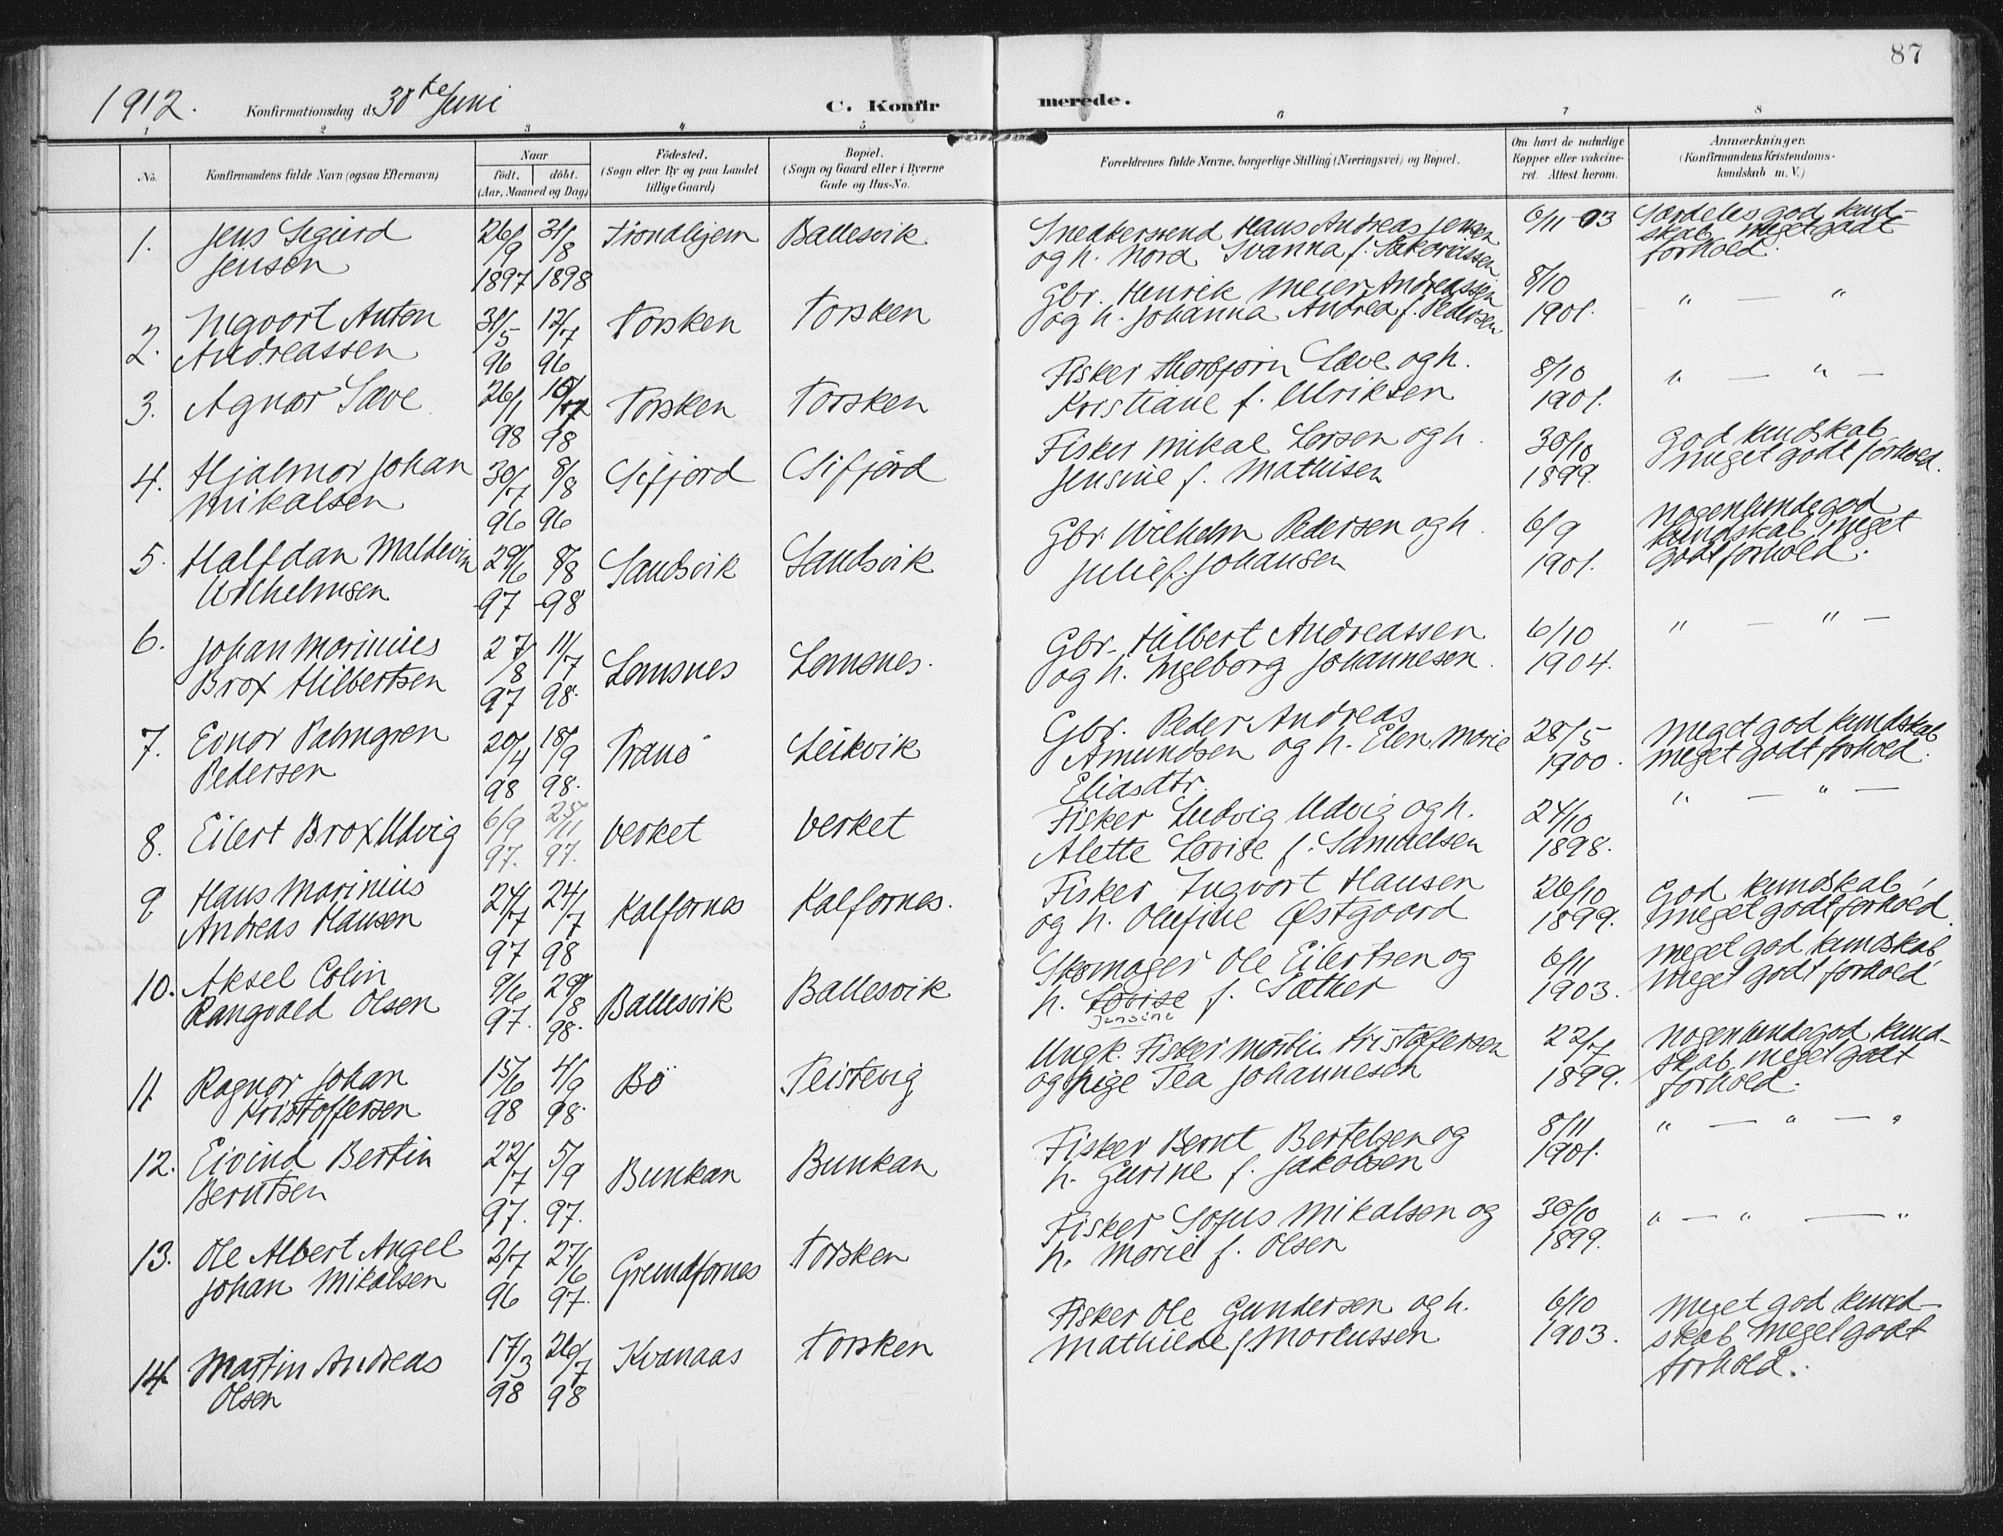 87
1912. Konfirmationsdag d. 30te Juni
C. Konfirmerede.
1 2 3 4 5 6 7 8
No.
Konfirmandens fulde Navn (ogsaa Efternavn)
Naar
födt. döbt.
(Aar, Maaned og Dag)
Födested.
(Sogn eller By og paa Landet
tillige Gaard)
Bopæl.
(Sogn og Gaard eller i Byerne
Gade og Hus-No.
Forældrenes fulde Navne, borgerlige Stilling (Næringsvei) og Bopæl.
Om havt de naturlige
Kopper eller vakcine-
ret. Attest herom.
Anmærkninger.
(Konfirmandens Kristendoms-
kundskab m. V.)
1. Jens Sigurd Jensen 26/9 1897 31/8 1898 Trondhjem Ballesvik
Snedkersvend Hans Andreas Jensen
og h. Nord Ivanna f. Sakariassen
6/11-03
Særdeles god kund-
skab meget godt
forhold.
2. Ingvart Anton Andreassen 31/5 96 12/7 96 Torsken Torsken
Gbr. Henrik Meier Andreassen
og h. Johanna Andrea f. Pedersen
8/10 1901.
" — "
3. Agnar Sæve 26/1 98 98 Torsken Torsken
Fisker Thorbjørn Sæve og h.
Kristiane f. Ulriksen
8/10 1901.
" — " —
4. Hjalmar Johan Mikalsen 30/7 96 8/8 96 Sifjord Sifjord
Fisker Mikal Larsen og h.
Jensine f. Mathisen
30/10 1899.
God kundskab,
meget godt forhold.
5. Halfdan Maldevin Wilhelmsen 29/6 -97 8/8 -98 Sandsvik Sandsvik
Gbr. Wilhelm Pedersen og h.
Julie f. Johansen
6/9 1901.
Nogenlunde god
kundskab, meget
godt forhold.
6. Johan Marinius Brox Hilbertsen 27/8 97 11/7 98. Lamsnes Lamsnes.
Gbr. Hilbert Andreassen
og h. Ingeborg Johannesen.
6/10 1904.
" — " —
7. Einar Palmgren Pedersen 20/4 98 18/9 98. Tranö Leikvik
Gbr. Peder Andreas
Amundsen og h. Elen Marie
Eliasdtr.
28/5 1900.
Meget god kundskab
meget godt forhold.
8. Eilert Brox Udvig 6/9 97. 25/11 97. Verket Verket
Fisker Ludvig Udvig og h.
Alette Lovise f. Samuelsen
24/10 1898.
" — " —
9 Hans Marinius Andreas Hansen 24/7 97 24/7 98 Kalfarnes Kalfarnes.
Fisker Ingvart Hansen
og h. Olufine Østgaard
26/10 1899.
God kundskab,
meget godt forhold.
10. Aksel Colin Rangvald Olsen 9/6 97. 29/8 98. Ballesvik Ballesvik
Skomager Ole Eilertsen og
h. Lovise f. Sæther
Jensine
6/11 1903.
Meget god kundskab,
meget godt forhold
11. Ragnar Johan Kristoffersen 15/6 98 4/9 98. Bö Teistevig
Ungk. Fisker Martin Kristoffersen
og pige Tea Johannesen
22/7 1899.
Nogenlunde god kund-
skab, meget godt
forhold.
12. Eivind Bertin Berntsen 22/7 97. 5/9 97. Bunkan Bunkan
Fisker Bernt Bertelsen og
h. Gurine f. Jakobsen
8/11 1901.
" — " — "
13. Ole Albert Angel Johan Mikalsen 2/7 96 27/6 97. Grundfarnes Torsken
Fisker Sofus Mikalsen og
h. Marie f. Olsen
30/10 1899.
" — " — "
14. Martin Andreas Olsen 17/3 98 26/7 98 Kvanaas Torsken
Fisker Ole Gundersen og h.
Mathilde f. Markussen
6/10 1903.
Meget god kund-
skab meget godt
forhold.